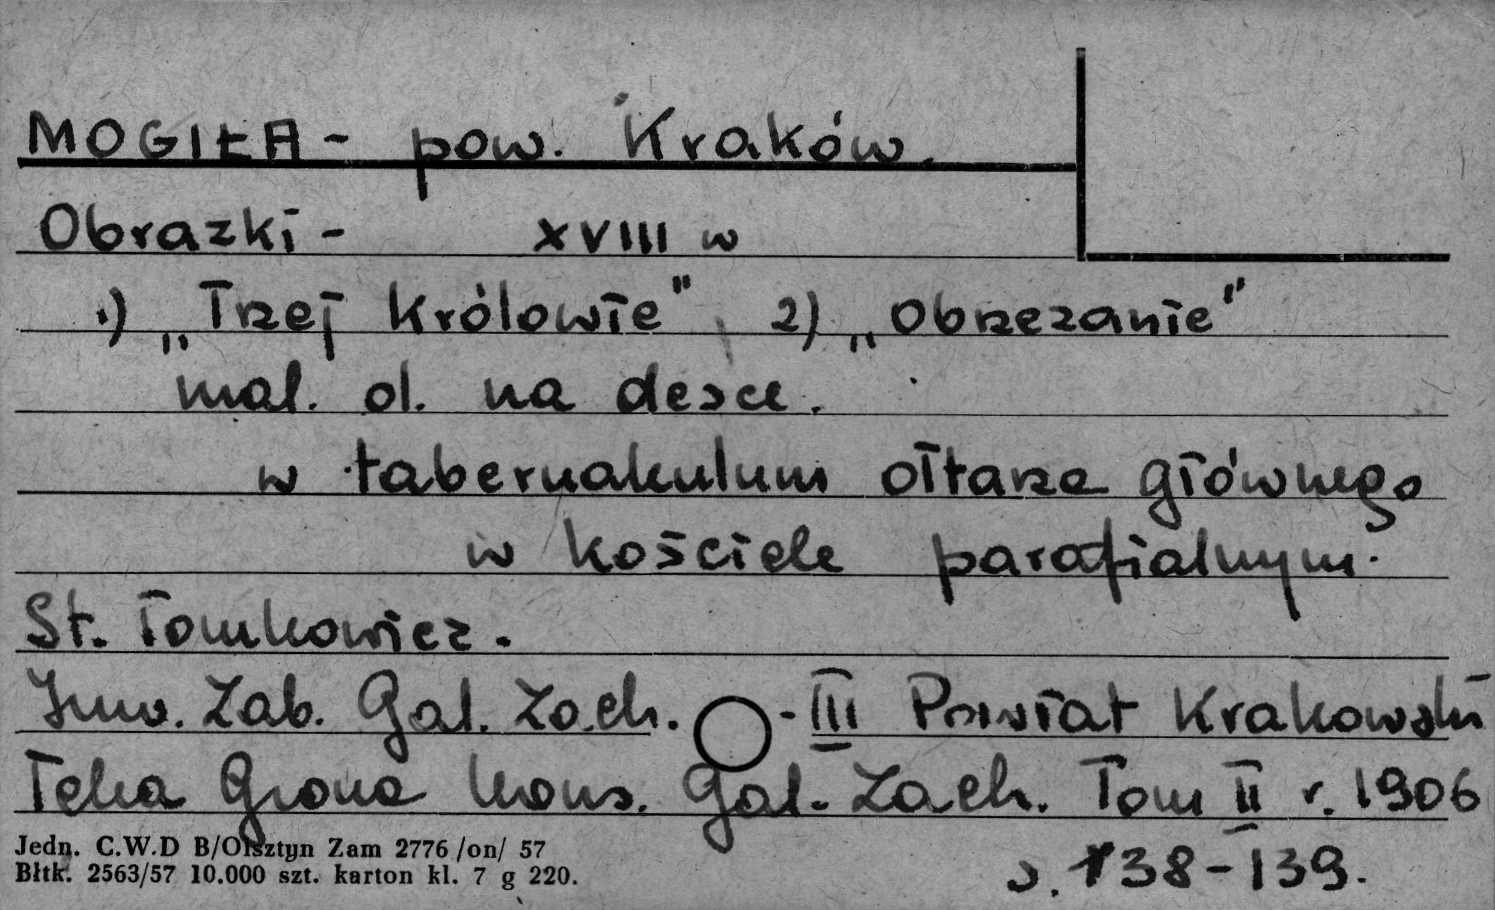 MOGIŁA - pow. Kraków.
Obrazki - XVIII w
1) „Trzej Królowie" , 2) „Obrzezanie"
mal. ol. na desce.
w tabernakulum ołtarza głównego
w kościele parafialnym.
St. Tomkowicz.
Inw. Zab. Gal. Zach. - III Powiat Krakowski
Teka Grona Kons. Gal. Zach. Tom II r. 1906
s. 138-139.
Jedn. C.W.D B/Olsztyn Zam 2776 /on/ 57
Błtk. 2563/57 10.000 szt. karton kl. 7 g 220.